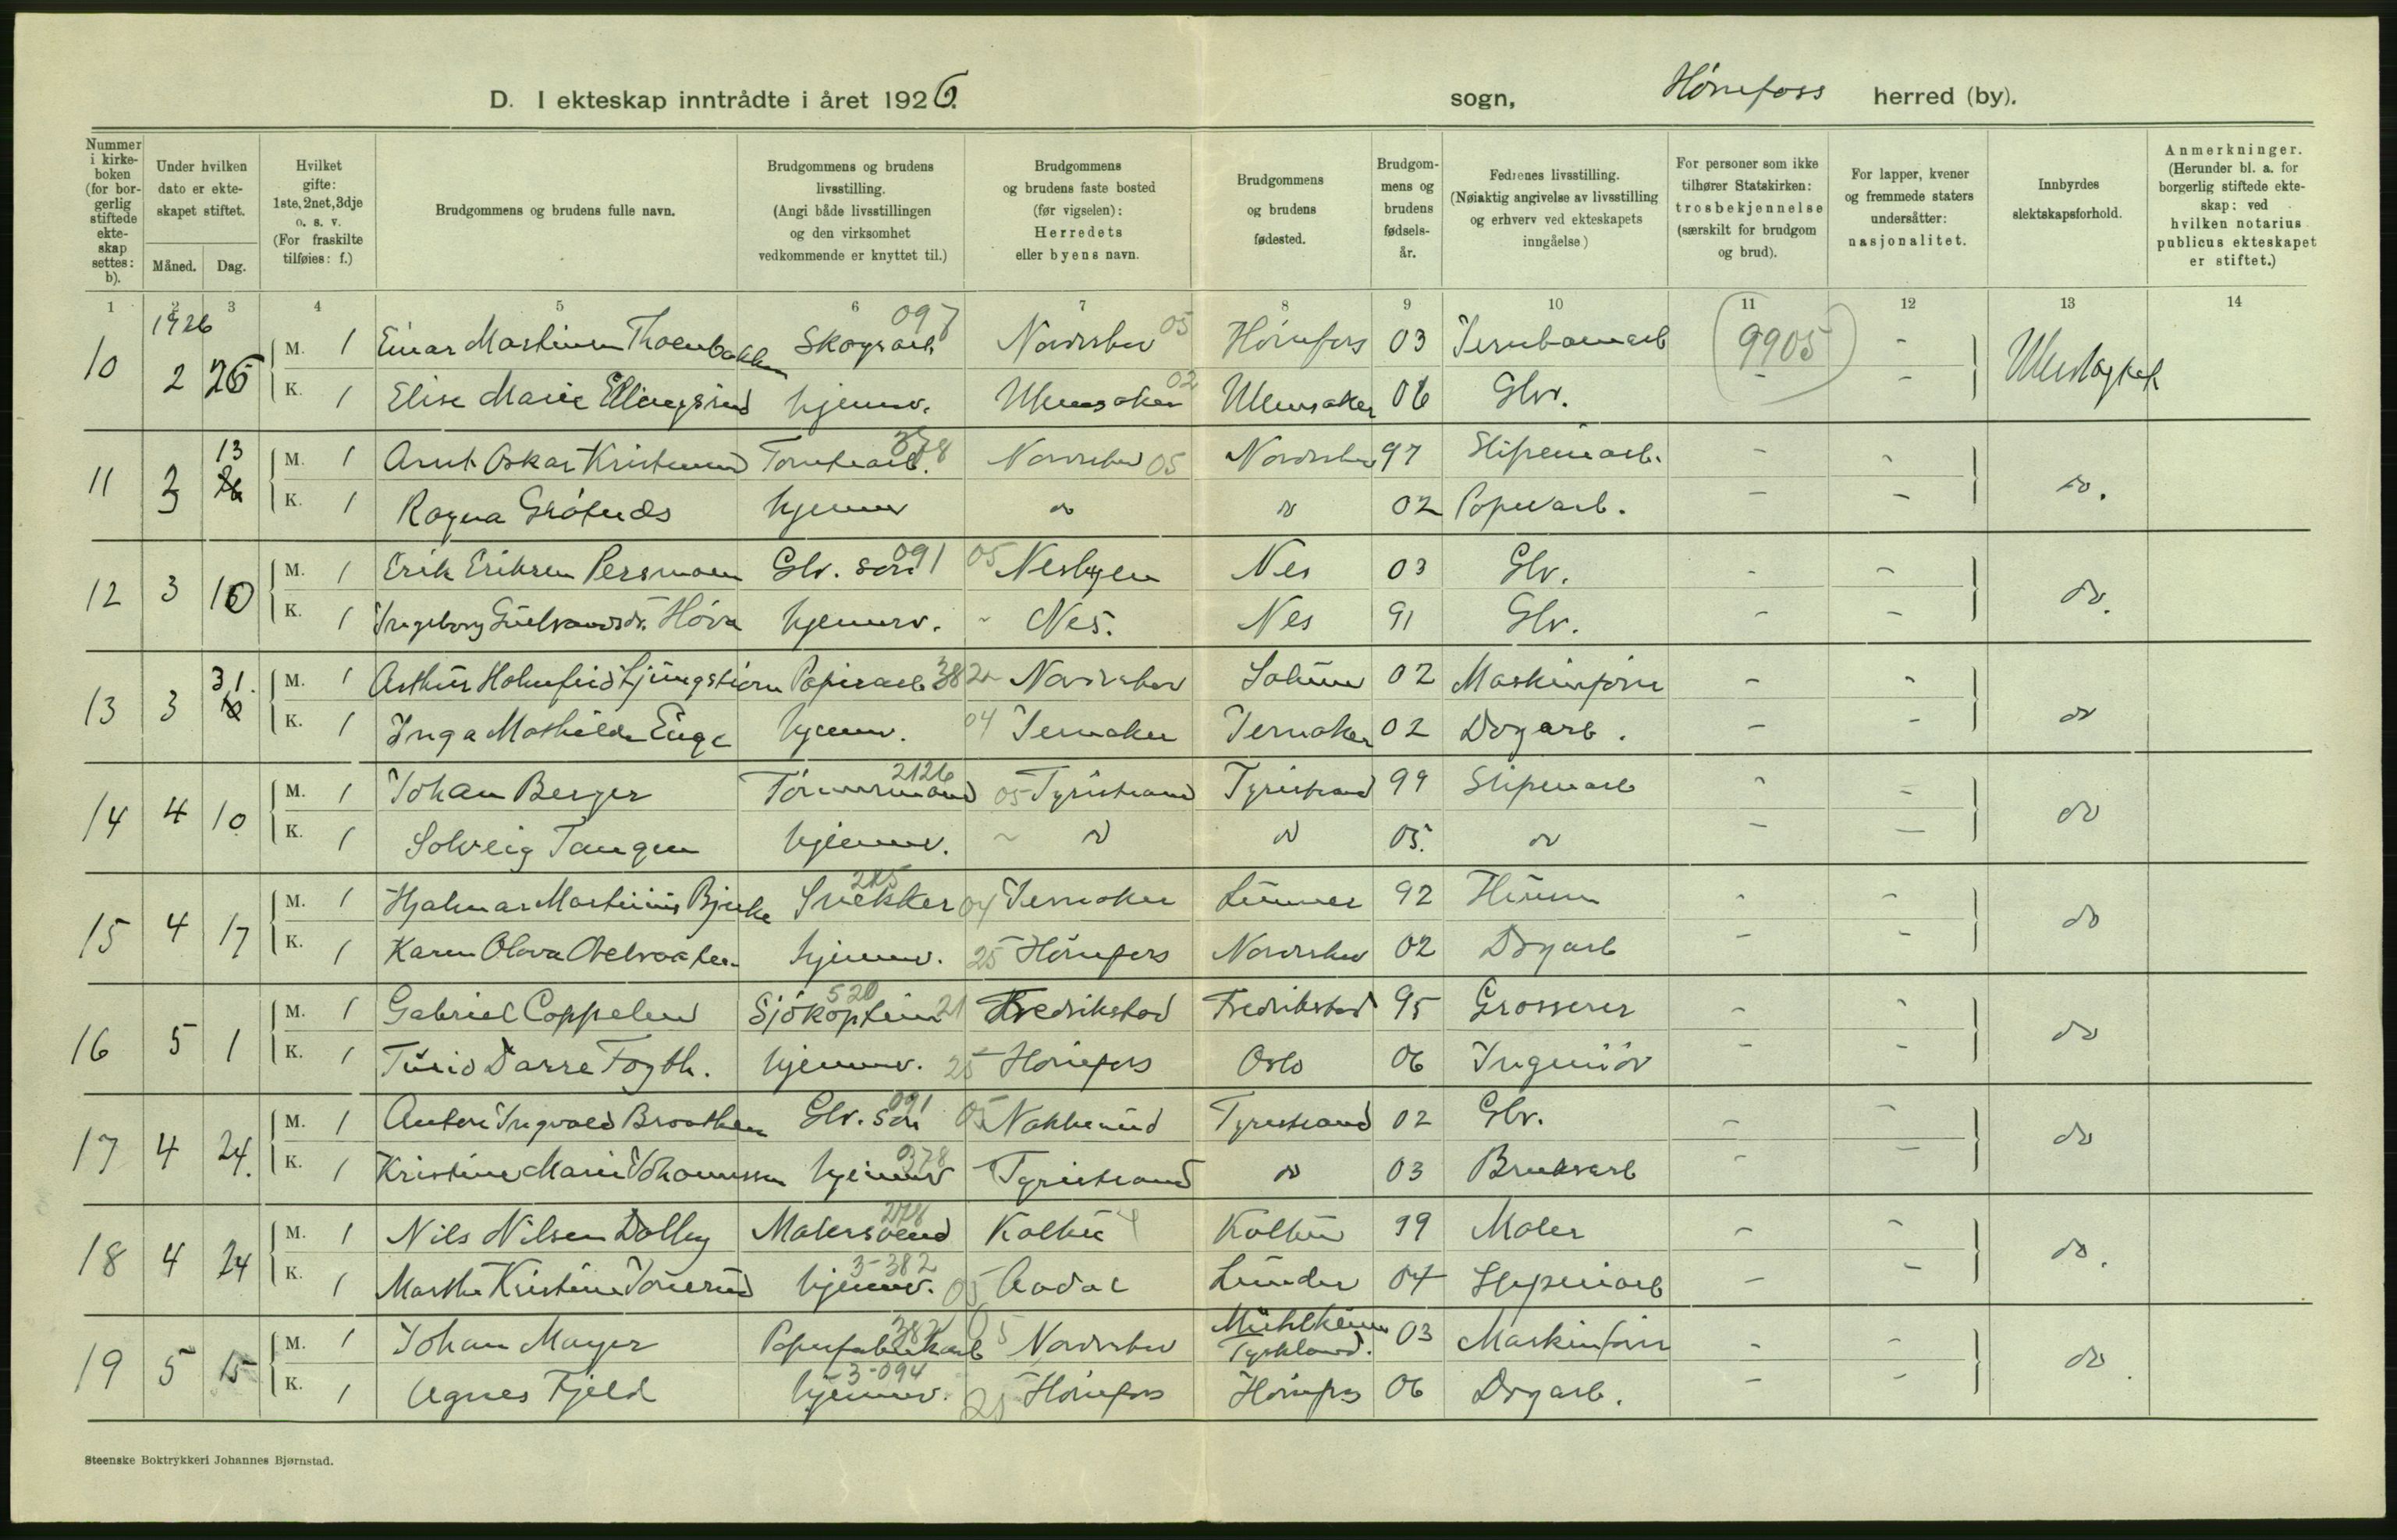 D. I ekteskap inntrådte i året 1926.
sogn, Hönefoss herred (by).
Nummer i kirke-boken (for bor-gerlig stiftede ekte-skap settes: b).
Under hvilken dato er ekte-skapet stiftet.
Måned. Dag.
Hvilket gifte: 1ste, 2net, 3dje o. s. v. (For fraskilte tilføies: f.)
Brudgommens og brudens fulle navn.
Brudgommens og brudens livsstilling. (Angi både livsstillingen og den virksomhet vedkommende er knyttet til.)
Brudgommens og brudens faste bosted (før vigselen): Herredets eller byens navn.
Brudgommens og brudens fødested.
Brudgom-mens og brudens fødsels-år.
Fedrenes livsstilling. (Nøiaktig angivelse av livsstilling og erhverv ved ekteskapets inngåelse)
For personer som ikke tilhører Statskirken: trosbekjennelse (særskilt for brudgom og brud).
For lapper, kvener og fremmede staters undersåtter: nasjonalitet.
Innbyrdes slektskapsforhold.
Anmerkninger. (Herunder bl. a. for borgerlig stiftede ekte-skap: ved hvilken notarius publicus ekteskapet er stiftet.)
1 2 3 4 5 6 7 8 9 10 11 12 13 14
1926
10 2 26 M. 1 Einar Martinsen Thoenbakken Skogsarb. 097 Norderhov 05 Hönefoss 03 Jernbanearb 9905 - Ubeslagtet
K. 1 Elise Marie Ellingsrud hjemmev. Ullensaker 02 Ullensaker 06 Gbr. - -
11 3 13 M. 1 Arnt Oskar Kristensen Tomtearb. 378 Norderhov 05 Norderhov 97 Sliperiarb. - - do.
K. 1 Ragna Gröterds hjemmev do do 02 Papirarb. - -
12 3 10 M. 1 Erik Eriksen Persmoen Gbr. sön 091 05 Nesbyen Nes 03 Gbr. - - do.
K. 1 Ingeborg Gulbrandsdr. Höva hjemmev. - Nes. Nes 91 Gbr. - -
13 3 31. M. 1 Arthur Holmfrid Ljungstiørn Papirarb 382 Norderhov 02 Maskinförer - - do
K. 1 Inga Mathilde Enge hjemmev. 04 Jevnaker Jevnaker 02 Dagarb. - -
14 4 10 M. 1 Johan Berger Tömmermand 2126 05 Tyristrand Tyristrand 99 Sliperiarb - - do
K. 1 Solveig Tangen hjemmev. ~ do do 05. do - -
15 4 17 M. 1 Hjalmar Martinius Bjerke Snekker 215 04 Jevnaker Lunner 92 - - do
K. 1 Karen Olava hjemmev. 25 Hönefoss Norderhov 02 Dagarb - -
16 5 1 M. 1 Gabriel Coppelen Sjökaptein 520 21 Fredrikstad Fredrikstad 95 Grosserer - - do
K. 1 Turid Darre Fogth. hjemmev. 25 Hönefoss Oslo 06 Ingeniör - -
17 4 24. M. 1 Anton Ingvald Braathen Gbr. sön 091 05 Nakkerud Tyristrand 02 Gbr. - - do
K. 1 Kristine Marie Johannessen hjemmev 378 Tyristrand do 03 Bruksarb - -
18 4 24 M. 1 Nils Nilsen Dalby Malersvend 278 Kolbu 4 Kolbu 99 Maler - - do.
K. 1 Marthe Kristine hjemmev. 3-382 05 Aadal Lunder 04 Sliperiarb - -
19 5 15 M. 1 Johan Mayer Papirfabrikarb 382 05 Norderhov Mühlheim Tyskland. 03 Maskinförer - - do.
K. 1 Agnes Fjeld hjemmev. 3-094 25 Hönefoss Hönefoss 06 Dagarb. - -
Steenske Boktrykkeri Johannes Bjørnstad.